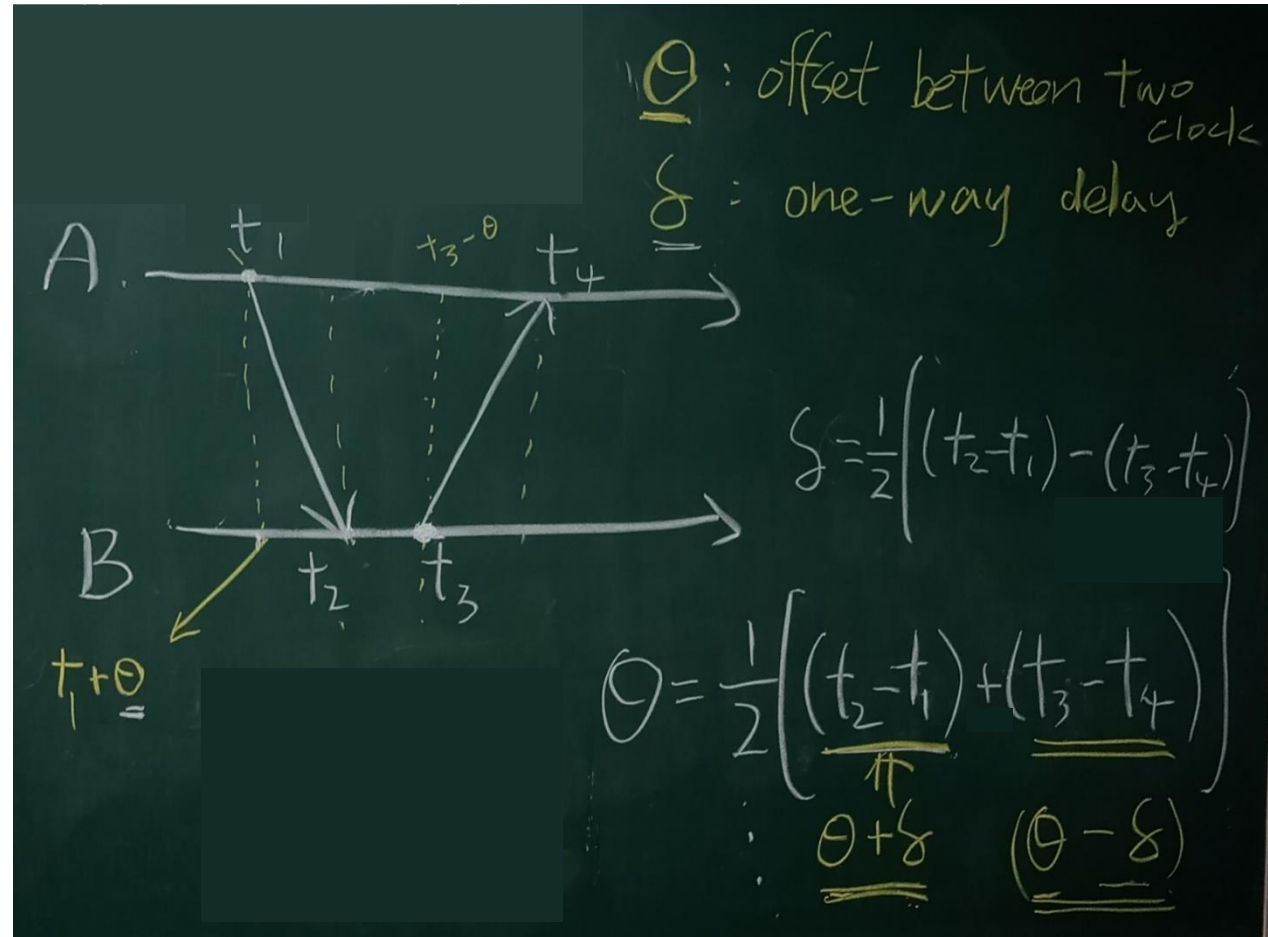 θ : offset between two
clock
δ : one-way delay
A.
t₁
t₃-θ
t₄
B
t₂
t₃
t₁+θ
δ=½[(t₂-t₁)-(t₃-t₄)]
θ=½[(t₂-t₁)+(t₃-t₄)]
θ+δ (θ-δ)